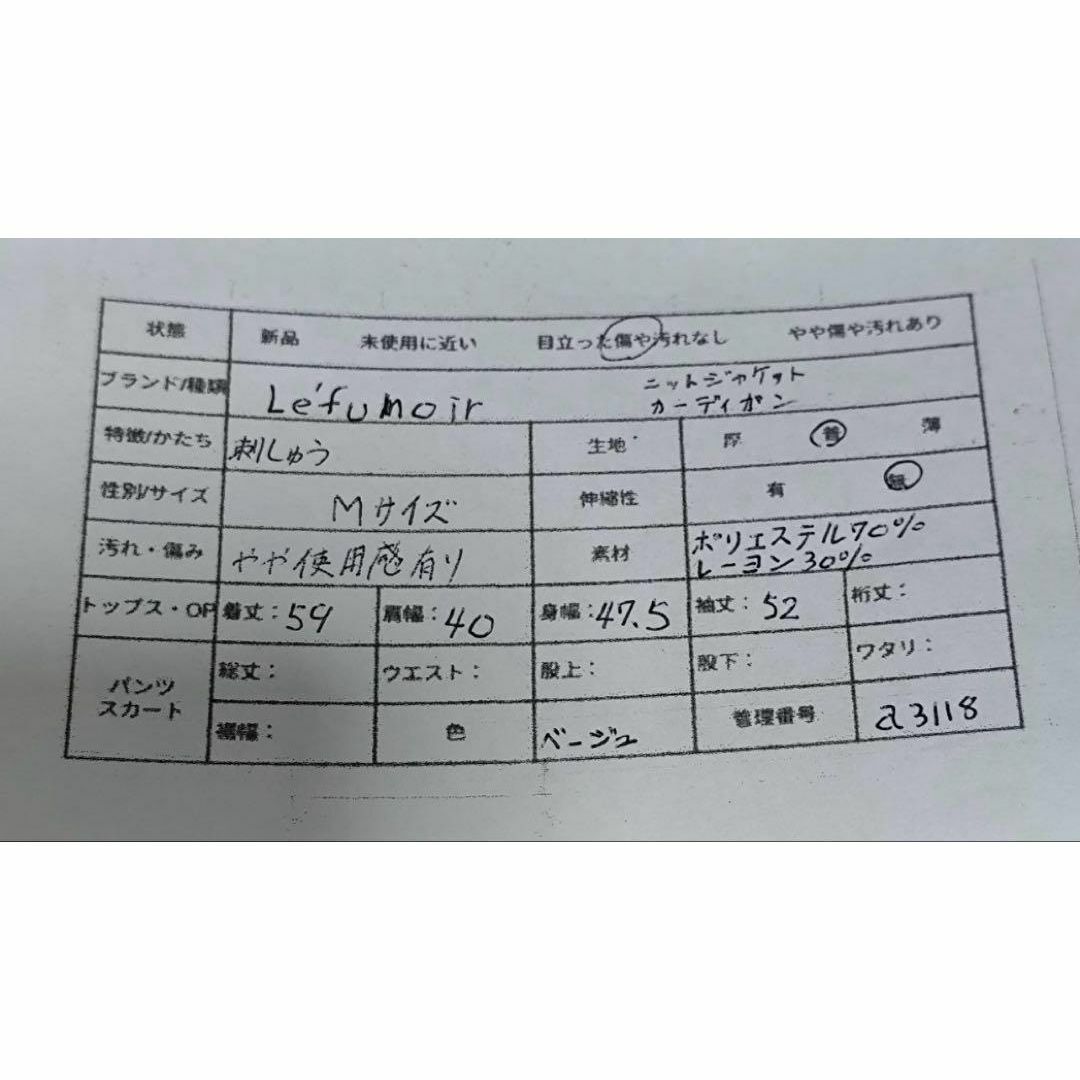 状態 新品 未使用に近い 目立った傷や汚れなし やや傷や汚れあり
ブランド/種類 Le'fumoir ニットジャケット
カーディガン
特徴/かたち 刺しゅう 生地 厚 普 薄
性別/サイズ Mサイズ 伸縮性 有 無
汚れ・傷み やや使用感有り 素材 ポリエステル70%
レーヨン30%
トップス・OP 着丈:59 肩幅:40 身幅:47.5 袖丈:52 裄丈:
パンツ
スカート
総丈: ウエスト: 股上: 股下: ワタリ:
裾幅: 色 ベージュ 管理番号 a3118